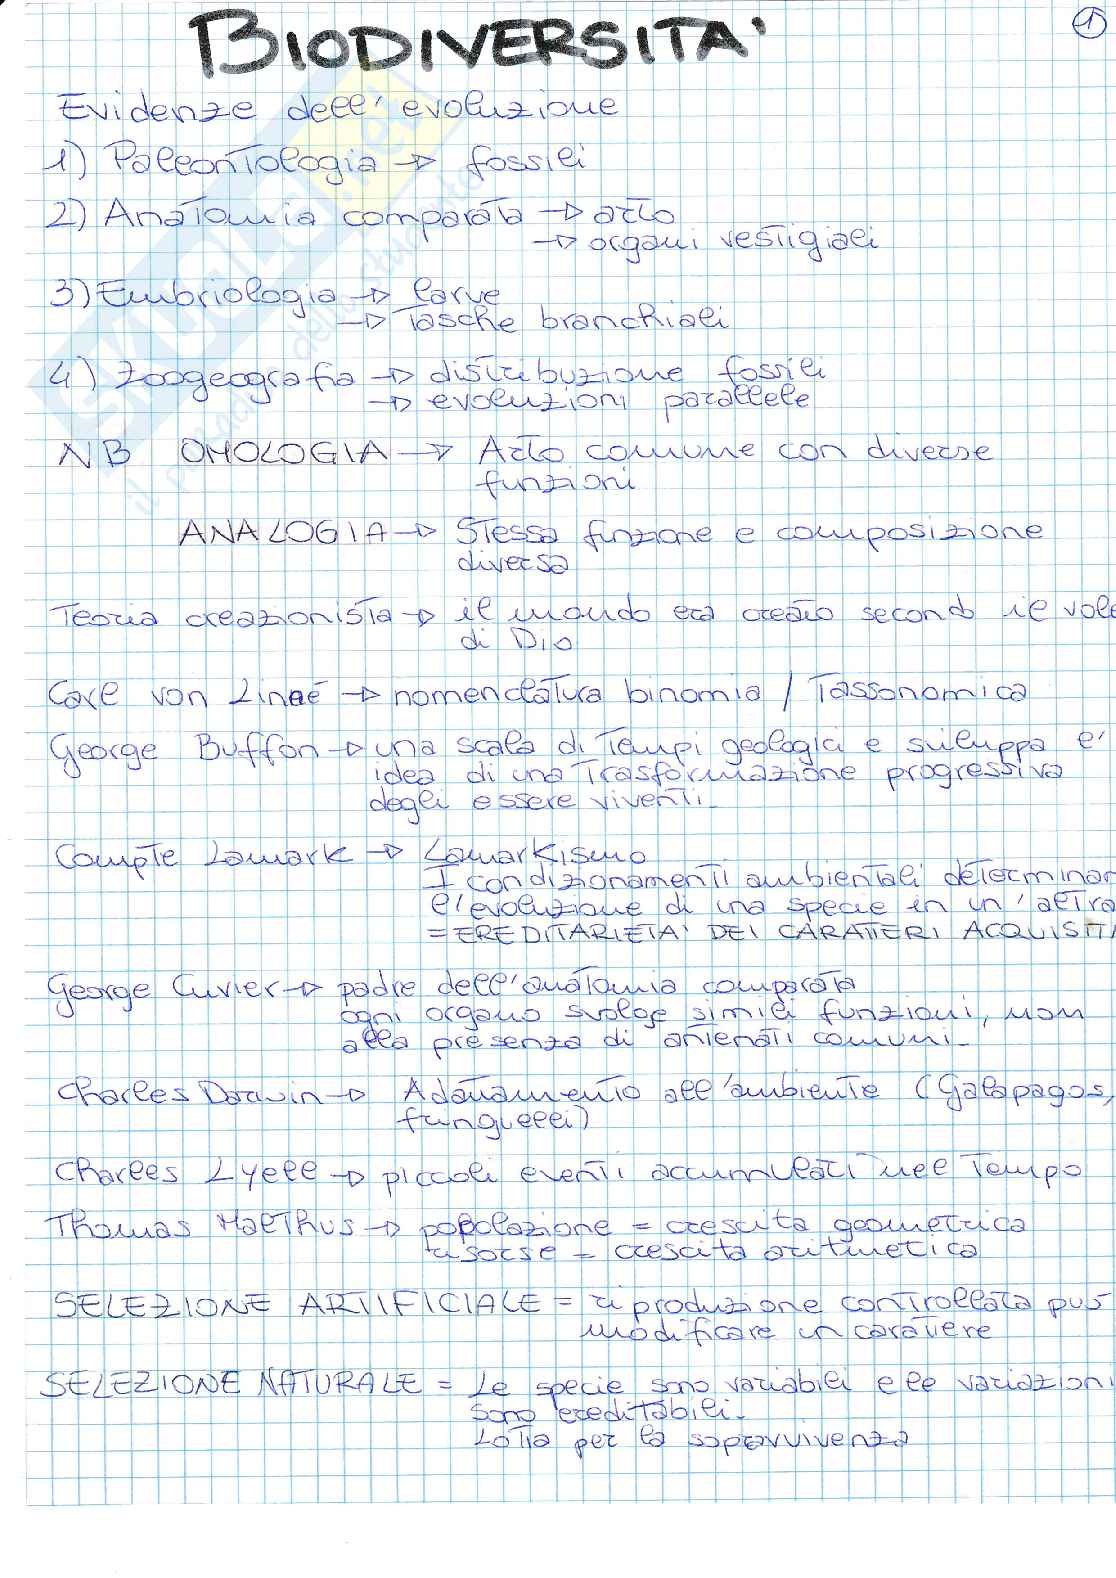 BIODIVERSITA'
1
Evidenze dell'evoluzione
1) Paleontologia → fossili
2) Anatomia comparata → arto
→ organi vestigiali
3) Embriologia → larve
→ Tasche branchiali
4) Zoogeografia → distribuzione fossili
→ evoluzioni parallele
NB OMOLOGIA → Arto comune con diverse
funzioni
ANALOGIA → Stessa funzione e composizione
diversa
Teoria creazionista → il mondo era creato second il vole
di Dio
Carl von Linné → nomenclatura binomia / Tassonomica
George Buffon → una scala di Tempi geologici e sviluppa l'
idea di una Trasformazione progressiva
degli essere viventi.
Compte Lamark → Lamarkismo
I condizionamenti ambientali determinar
l'evoluzione di una specie in un'altra
= EREDITARIETA' DEI CARATTERI ACQUISITI
George Cuvier → padre dell'anatomia comparata
ogni organo svolge simili funzioni, non
alla presenza di antenati comuni.
Charles Darwin → Adattamento all'ambiente (Galapagos,
fringuelli)
Charles Lyell → piccoli eventi accumulati nel Tempo
Thomas Malthus → popolazione = crescita geometrica
risorse = crescita aritmetica
SELEZIONE ARTIFICIALE = riproduzione controllata può
modificare un carattere
SELEZIONE NATURALE = Le specie sono variabili e le variazioni
sono ereditabili.
Lotta per la sopravvivenza